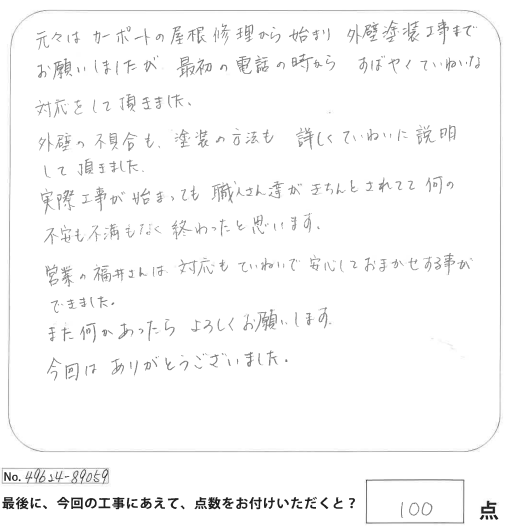 元々はカーポートの屋根修理から始まり 外壁塗装工事まで
お願いしましたが、最初の電話の時から すばやくていねいな
対応をして頂きました。
外壁の不具合も、塗装の方法も 詳しくていねいに説明
して頂きました。
実際工事が始まっても 職人さん達がきちんとされてて何の
不安も不満もなく終わったと思います。
営業の福井さんは対応もていねいで安心しておまかせする事が
できました。
また何かあったら よろしくお願いします。
今回は ありがとうございました。
No. 49624-89059
最後に、今回の工事にあえて、点数をお付けいただくと？ 100 点